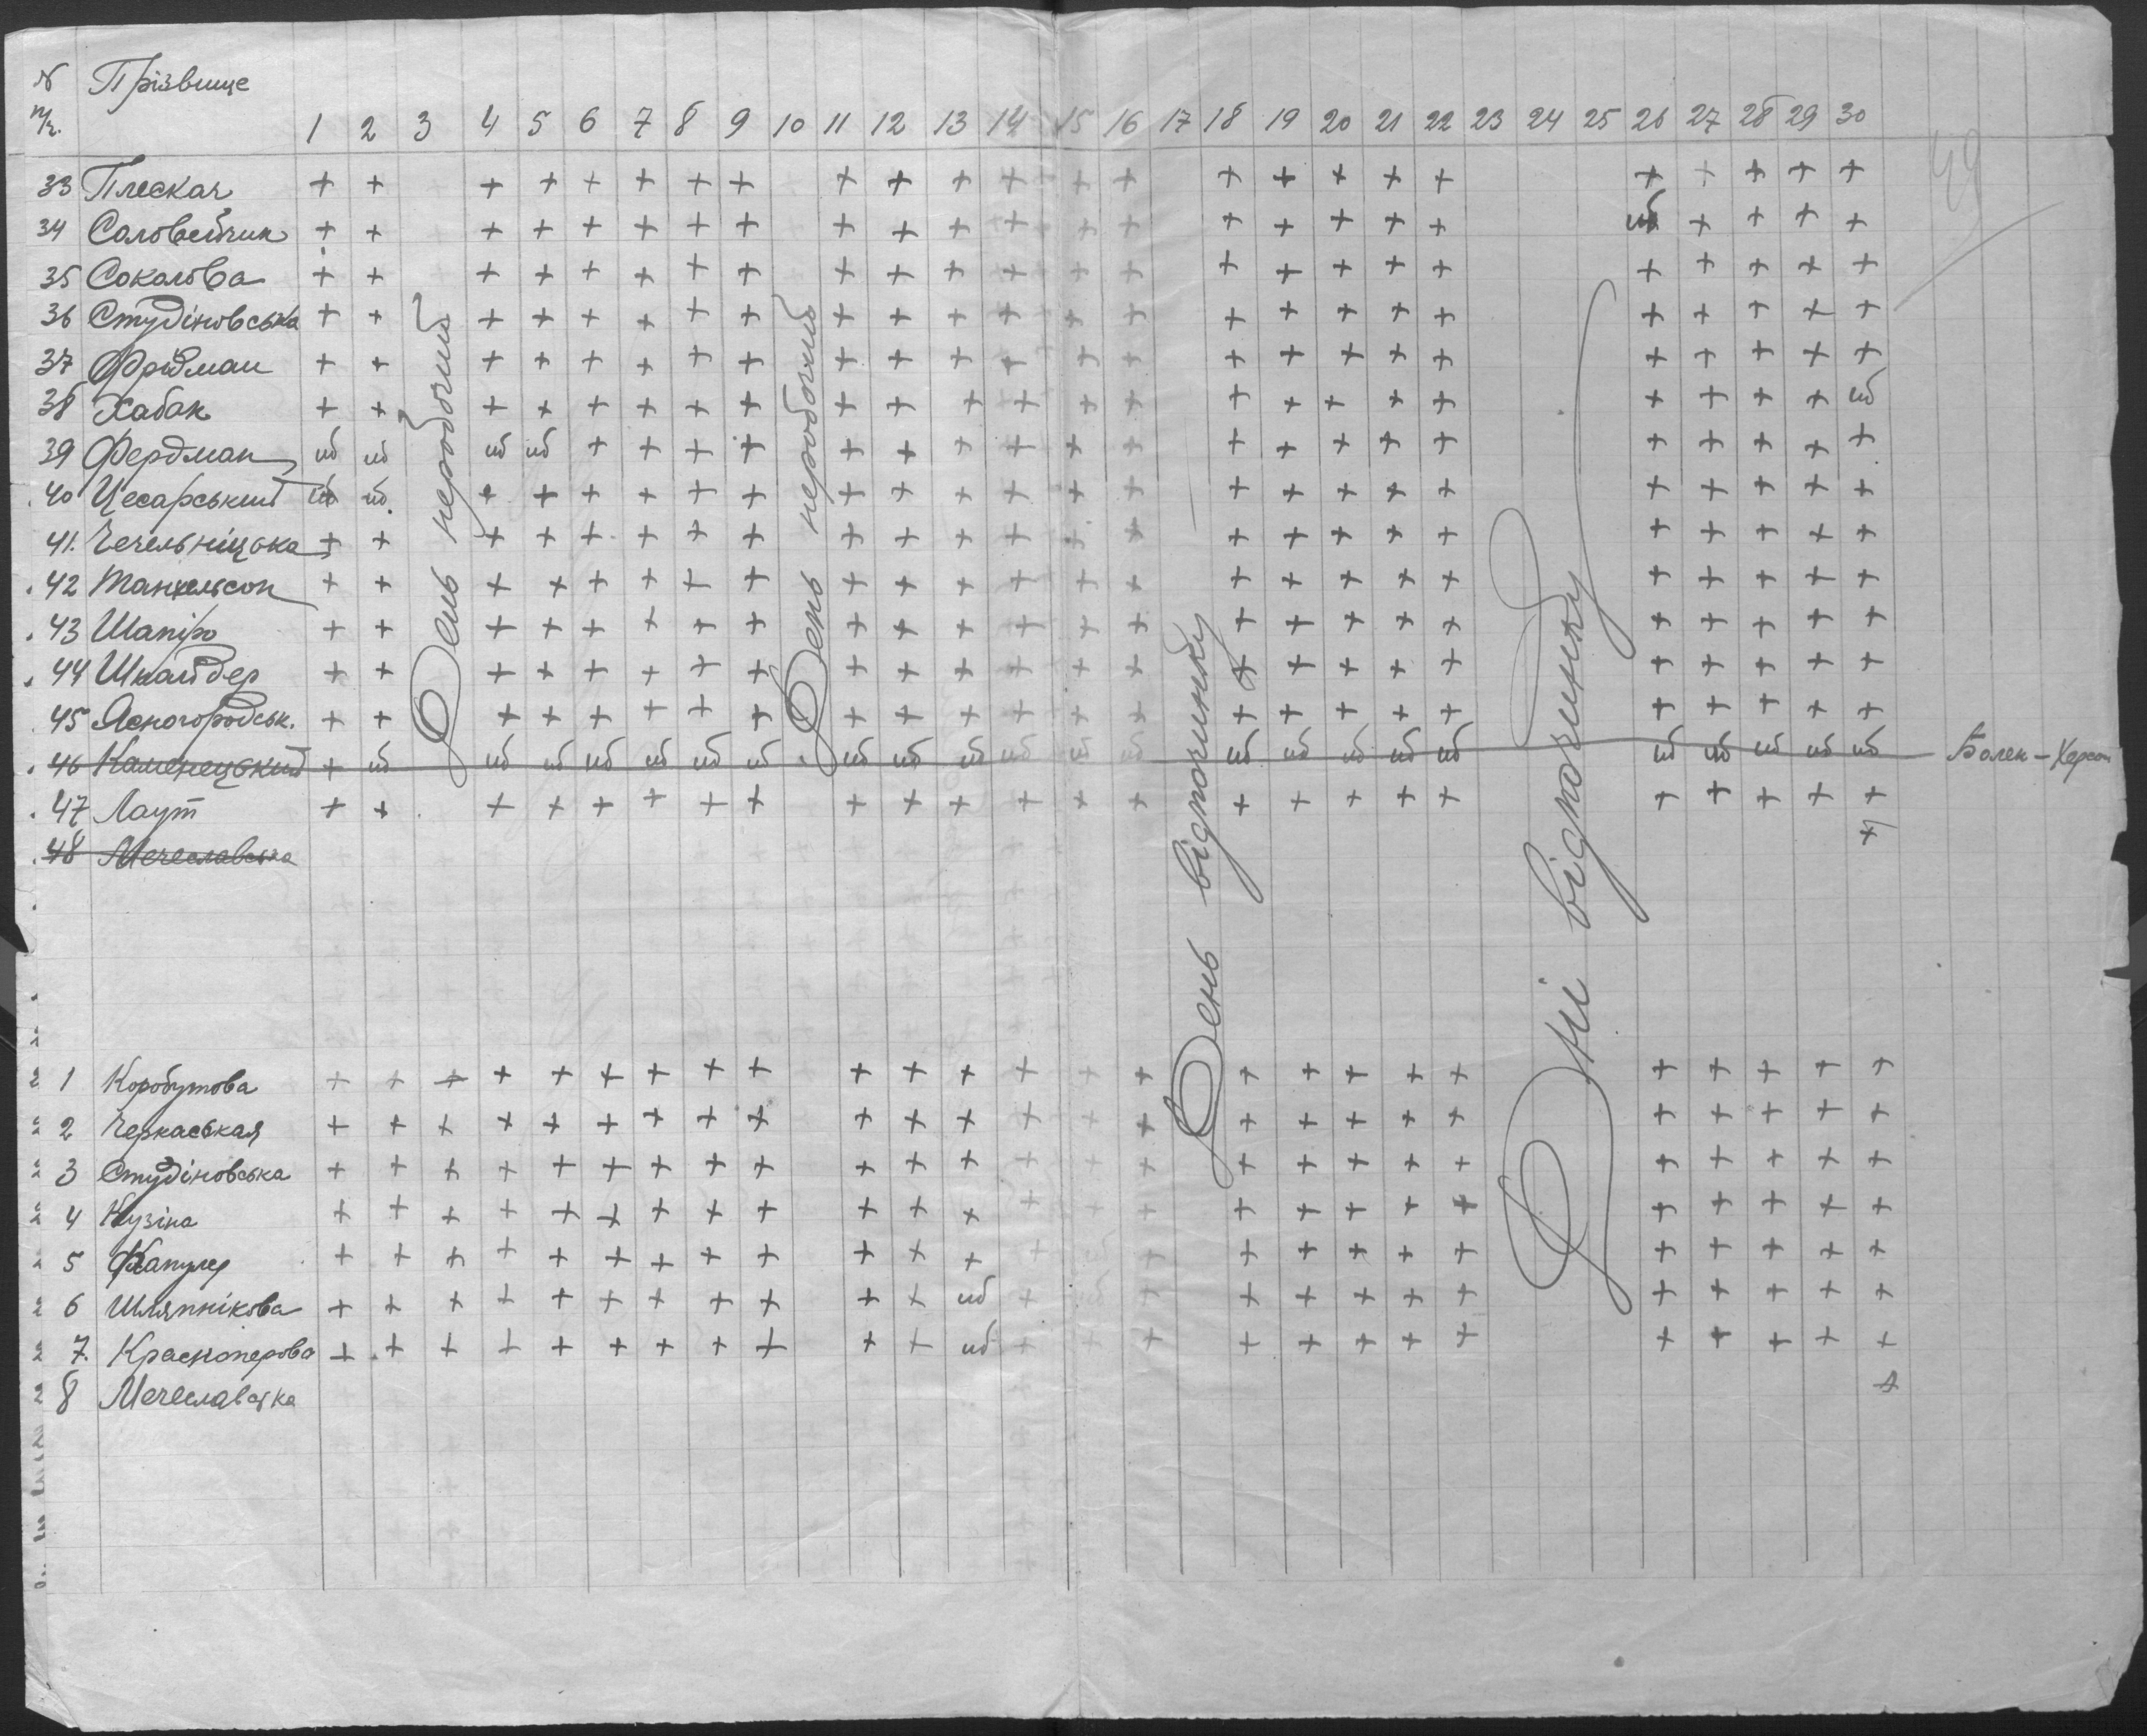 № Прізвище
п/ч. 1 2 3 4 5 6 7 8 9 10 11 12 13 14 15 16 17 18 19 20 21 22 23 24 25 26 27 28 29 30
33 Плескач + + + + + + + + + + + + + + + + + + + + + + + +
34 Соловейчик + + + + + + + + + + + + + + + + + + + + + + +
35 Соколова + + + + + + + + + + + + + + + + + + + + + + + +
36 Студіновська + + + + + + + + + + + + + + + + + + + + + + + +
37 Фрідман + + + + + + + + + + + + + + + + + + + + + + + +
38 Хабак + + + + + + + + + + + + + + + + + + + + + + + нб
39 Фердман нб нб нб нб + + + + + + + + + + + + + + + + + + + +
40 Цесарський нб нб. + + + + + + + + + + + + + + + + + + + + + +
41. Чечельніцька + + + + + + + + + + + + + + + + + + + + + + + +
42 Танхельсон + + + + + + + + + + + + + + + + + + + + + + + +
43 Шапіро + + + + + + + + + + + + + + + + + + + + + + + +
44 Шнайдер + + + + + + + + + + + + + + + + + + + + + + + +
45 Ясногородськ. + + + + + + + + + + + + + + + + + + + + + + + +
46 Каменецький + нб нб нб нб нб нб нб нб нб нб нб нб нб нб нб нб нб нб нб нб нб нб нб Болен – Херсон
47 Лаут + + + + + + + + + + + + + + + + + + + + + + + +
48 Мечеславська +
День неробочий
День неробочий
День відпочинку
Дні відпочинку
49
1 Коробутова + + + + + + + + + + + + + + + + + + + + + + + + +
2 Черкаськая + + + + + + + + + + + + + + + + + + + + + + + + +
3 Студіновська + + + + + + + + + + + + + + + + + + + + + + + + +
4 Кузіна + + + + + + + + + + + + + + + + + + + + + + + + +
5 + + + + + + + + + + + + + нб + + + + + + + + + + +
6 Шляпнікова + + + + + + + + + + + нб + нб + + + + + + + + + + +
7. Красноперова + + + + + + + + + + + нб + + + + + + + + + + + + +
8 Мечеславська +